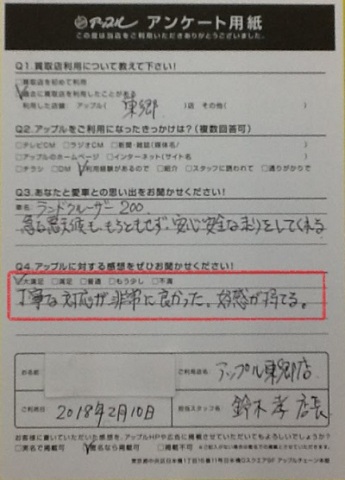 アップル アンケート用紙
この度は当店をご利用いただきありがとうございました。
Q1.買取店利用について教えて下さい!
□買取店を初めて利用
☑過去に買取店を利用したことがある
利用した店舗: アップル( 東郷 )店 その他( )
Q2.アップルをご利用になったきっかけは?(複数回答可)
□テレビCM □ラジオCM □新聞・雑誌(媒体名/ )
□アップルのホームページ □インターネット(サイト名 )
□チラシ □DM ☑利用経験があるので □紹介 □スタッフに誘われて □通りがかりで
Q3.あなたと愛車との思い出をお聞かせください!
車名: ランドクルーザー200
もろともせず、安心安全な走りをしてくれる
Q4.アップルに対する感想をぜひお聞かせください!
☑大満足 □満足 □普通 □もう少し □不満
丁寧な対応が非常に良かった。好感が持てる。
お名前 ご利用店名 アップル東郷店
ご利用日 2018年2月10日 担当スタッフ名 鈴木孝店長
お客様に書いていただいた感想を、アップルHPや広告に掲載させていただいてもよろしいでしょうか?
□実名で掲載可 ☑匿名なら掲載可 □掲載不可